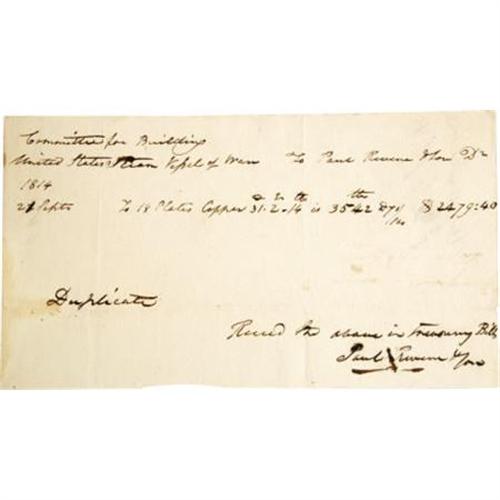 Committee for Building
United States Steam Vessel of War To Paul Revere & Son Dr
1814
21 Septr To 18 Plates Copper 31.2.14 is 3542 @ 70/100 $2479:40
Duplicate
Recd the above in Treasury Bills
Paul Revere & Son